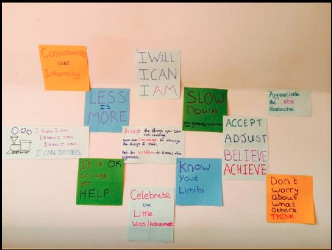 Consistency
over
Intensity
I WILL
I CAN
I AM
LESS
IS
MORE
SLOW
DOWN
Appreciate
the
ACCEPT
ADJUST
BELIEVE
ACHIEVE
I think I can
I think I can
I think I can
I CAN
Accept the things you can
not change.
the things I can.
the wisdom to know the
difference.
It's OK
to ask
for
HELP
Know
Your
Limits
Celebrate
the
Little
Wins/Achievements
Don't
worry
about
what
others
THINK